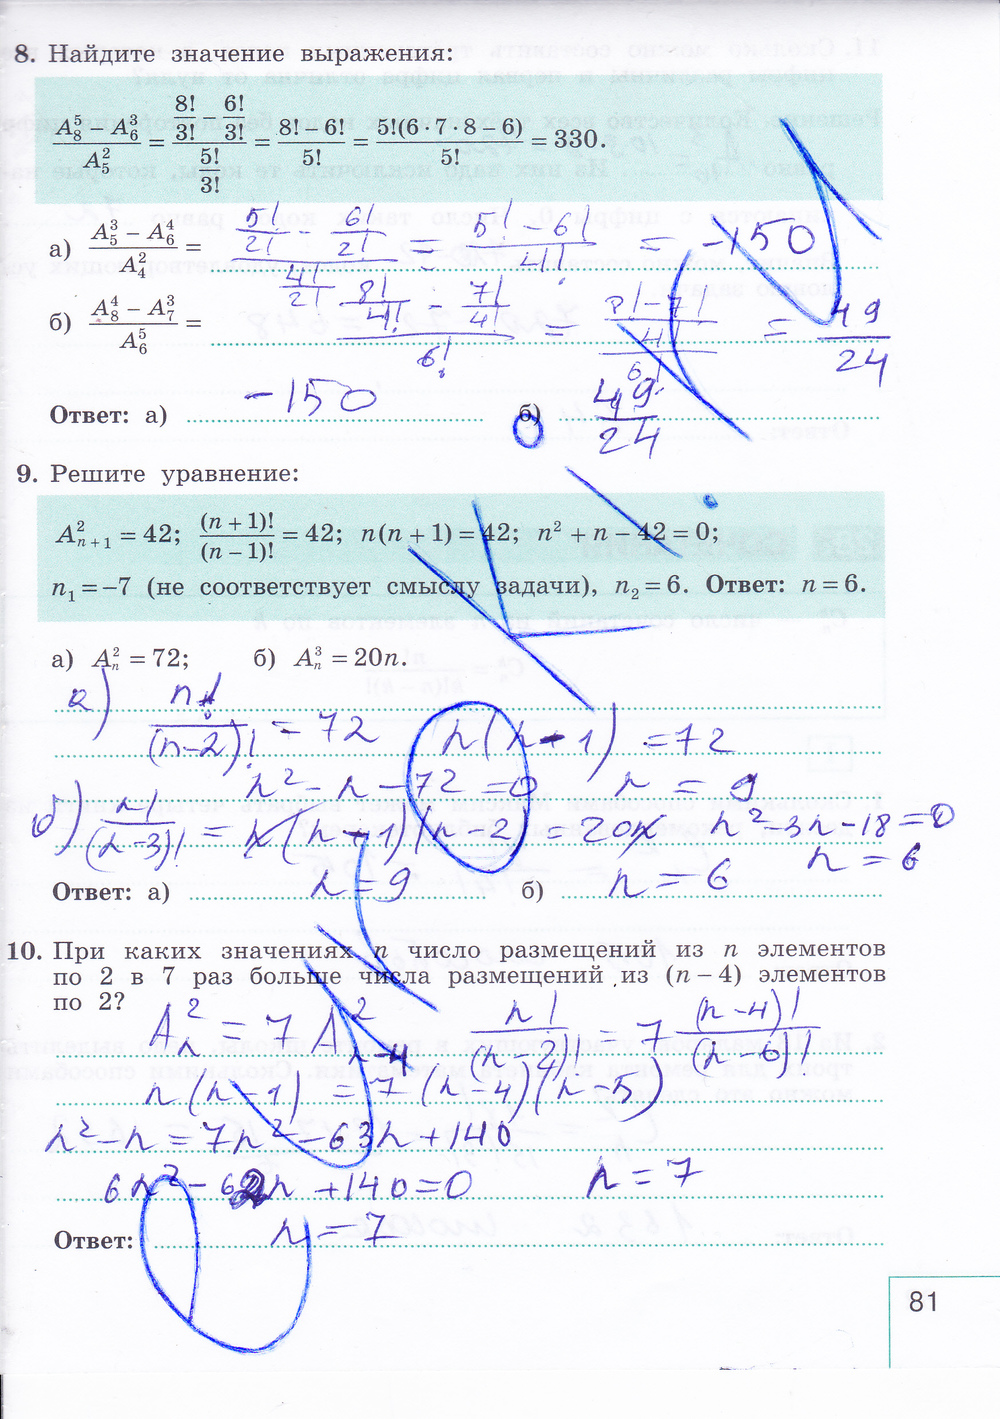 8. Найдите значение выражения:
(A_8^5 − A_6^3)/A_5^2 = (8!/3! − 6!/3!)/(5!/3!) = (8! − 6!)/5! = 5!(6 · 7 · 8 − 6)/5! = 330.
а) (A_5^3 − A_6^4)/A_4^2 = (5!/2! − 6!/2!)/(4!/2!) = (5! − 6!)/4! = −150
б) (A_8^4 − A_7^3)/A_6^5 = (8!/4! − 7!/4!)/6! = ((8! − 7!)/4!)/6! = 49/24
Ответ: а) −150 б) 49/24
9. Решите уравнение:
A_{n+1}^2 = 42; (n + 1)!/(n − 1)! = 42; n(n + 1) = 42; n² + n − 42 = 0;
n₁ = −7 (не соответствует смыслу задачи), n₂ = 6. Ответ: n = 6.
а) A_n^2 = 72; б) A_n^3 = 20n.
а) n!/(n−2)! = 72 n(n−1) = 72
n² − n − 72 = 0 n = 9
б) n!/(n−3)! = n(n−1)(n−2) = 20n n² − 3n − 18 = 0
n = 6
Ответ: а) n = 9 б) n = 6
10. При каких значениях n число размещений из n элементов
по 2 в 7 раз больше числа размещений из (n − 4) элементов
по 2?
A_n^2 = 7 A_{n−4}^2 n!/(n−2)! = 7 (n−4)!/(n−6)!
n(n−1) = 7(n−4)(n−5)
n² − n = 7n² − 63n + 140
6n² − 62n + 140 = 0 n = 7
Ответ: n = 7
81